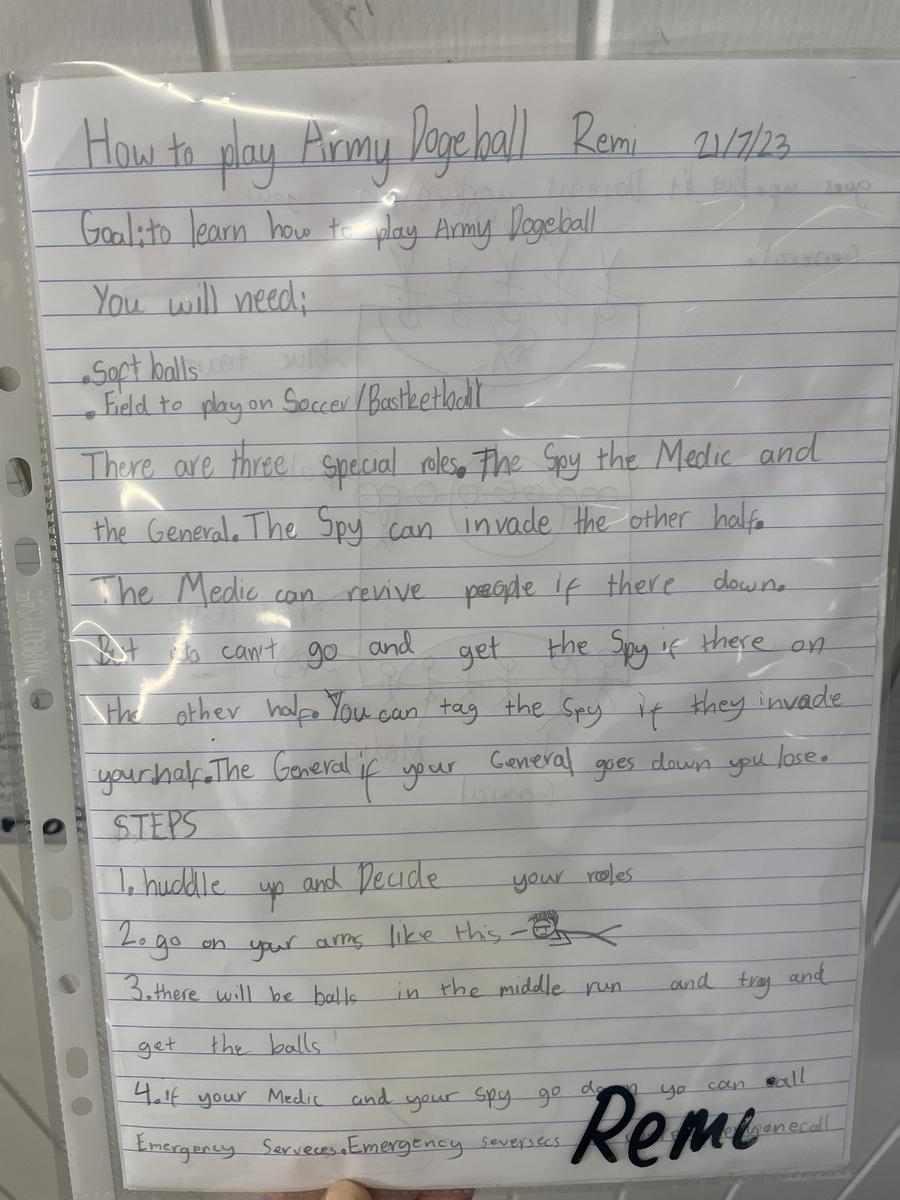 How to play Army Dogeball Remi 21/7/23
Goal: to learn how to play Army Dogeball
You will need;
.Soft balls
. Field to play on Soccer/Bastketball
There are three special roles. The Spy the Medic and
the General. The Spy can invade the other half.
The Medic can revive people if there down.
But can't go and get the Spy if there on
the other half. You can tag the Spy if they invade
your half. The General if your General goes down you lose.
STEPS
1. huddle up and Decide your roles
2. go on your arms like this -
3. there will be balls in the middle run and tray and
get the balls
4. If your Medic and your spy go down yo can call
Emergency Serveces. Emergency seversecs
Remi